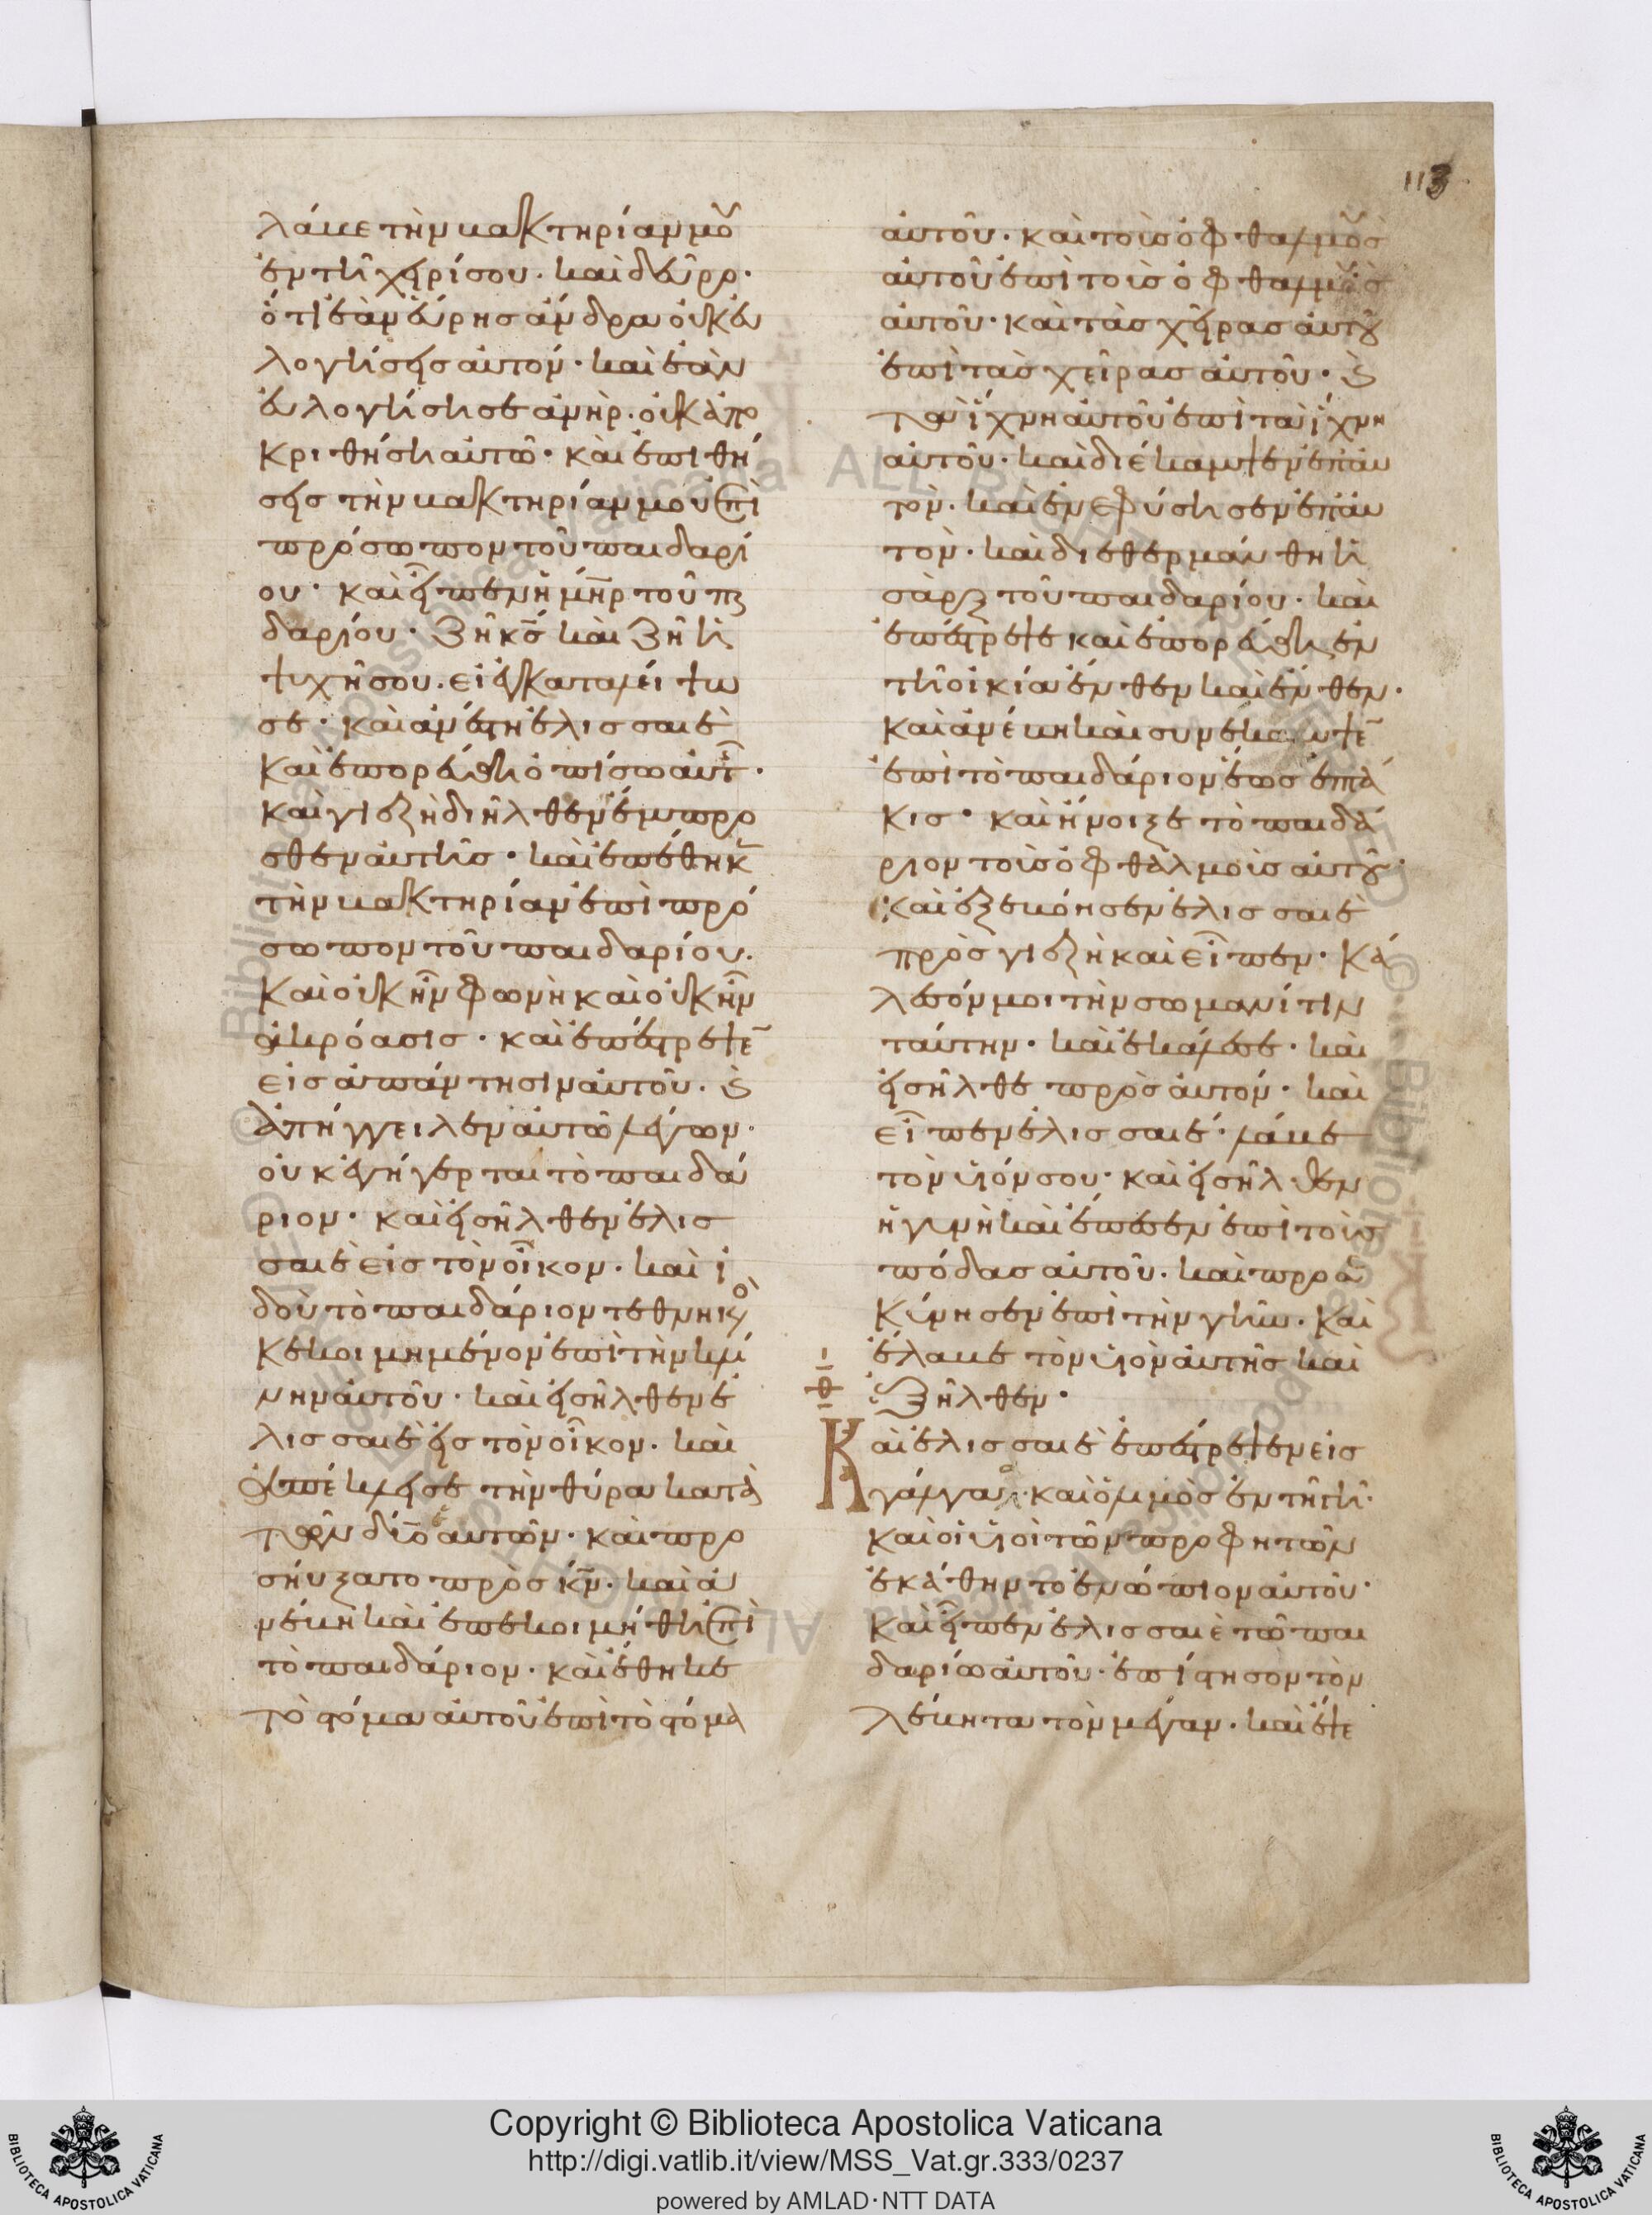 113
λάβε τὴν βακτηρίαν μου
ἐν τῇ χειρί σου· καὶ δεῦρο·
ὅτι ἐὰν εὕρης ἄνδρα οὐκ εὐ
λογήσεις αὐτόν· καὶ ἐὰν
εὐλογήση σε ἀνὴρ· οὐκ ἀπο
κριθήση αὐτῶ· καὶ ἐπιθή
σεις τὴν βακτηρίαν μου ἐπὶ
πρόσωπον τοῦ παιδαρί
ου· καὶ εἶπεν ἡ μηρ τοῦ παι
δαρίου· ζῆ κσ καὶ ζῆ ἡ
ψυχῆ σου· εἰ ἐγκαταλείψω
σε· καὶ ἀνέστη ἐλισσαιὲ
καὶ ἐπορεύθη ὀπίσω αὐτῆς·
καὶ γιεζὴ διῆλθεν ἔμπρο
σθεν αὐτῆς· καὶ ἐπέθηκε
τὴν βακτηρίαν ἐπὶ πρό
σωπον τοῦ παιδαρίου·
καὶ οὐκ ἦν φωνὴ καὶ οὐκ ἦν
ἀκρόασις· καὶ ἐπέστρεψεν
εἰς ἀπάντησιν αὐτοῦ· καὶ
ἀπήγγειλεν αὐτῶ λέγων·
οὐκ ἐγήγερται τὸ παιδά
ριον· καὶ εἰσῆλθεν ἐλισ
σαιὲ εἰς τὸν οἶκον· καὶ ἰ
δοὺ τὸ παιδάριον τεθνηκὸς
κεκοιμημένον ἐπὶ τὴν κλί
νην αὐτοῦ· καὶ εἰσῆλθεν ἐ
λισσαιὲ εἰς τὸν οἶκον· καὶ
ἀπέκλεισε τὴν θύραν κατὰ
τῶν δύο αὐτῶν· καὶ προ
σηύξατο πρὸς κν· καὶ ἀ
νέβη καὶ ἐπεκοιμήθη ἐπὶ
τὸ παιδάριον· καὶ ἔθηκε
τὸ στόμα αὐτοῦ ἐπὶ τὸ στόμα
αὐτοῦ· καὶ τοὺς ὀφθαλμοὺς
αὐτοῦ ἐπὶ τοὺς ὀφθαλμοὺς
αὐτοῦ· καὶ τὰς χεῖρας αὐτοῦ
ἐπὶ τὰς χεῖρας αὐτοῦ· καὶ
τὰ ἴχνη αὐτοῦ ἐπὶ τὰ ἴχνη
αὐτοῦ· καὶ διέκαμψεν ἐπ αὐ
τόν· καὶ ἐνεφύσησεν ἐπ αὐ
τὸν· καὶ διεθερμάνθη ἡ
σὰρξ τοῦ παιδαρίου· καὶ
ἐπέστρεψε καὶ ἐπορεύθη ἐν
τῇ οἰκία ἔνθεν καὶ ἔνθεν·
καὶ ἀνέβη καὶ συνέκαμψεν
ἐπὶ τὸ παιδάριον ἕως ἑπτά
κις· καὶ ἤνοιξε τὸ παιδά
ριον τοὺς ὀφθαλμοὺς αὐτοῦ·
καὶ ἐξεβόησεν ἐλισσαιὲ
πρὸς γιεζὴ καὶ εἶπεν· κά
λεσόν μοι τὴν σωμανίτιν
ταύτην· καὶ ἐκάλεσε· καὶ
εἰσῆλθε πρὸς αὐτόν· καὶ
εἶπεν ἐλισσαιέ· λάβε
τὸν υἱόν σου· καὶ εἰσῆλθεν
ἡ γυνὴ καὶ ἔπεσεν ἐπὶ τοὺς
πόδας αὐτοῦ· καὶ προσε
κύνησεν ἐπὶ τὴν γῆν· καὶ
ἔλαβε τὸν υἱὸν αὐτῆς καὶ
ἐξῆλθεν·
Καὶ ἐλισσαιὲ ἐπέστρεψεν εἰς
γάλγαλα· καὶ ὁ λιμὸς ἐν τῇ γῇ·
καὶ οἱ υἱοὶ τῶν προφητῶν
ἐκάθηντο ἐνώπιον αὐτοῦ·
καὶ εἶπεν ἐλισσαιὲ τῶ παι
δαρίω αὐτοῦ· ἐπίστησον τὸν
λέβητα τὸν μέγαν· καὶ ἕψε
Copyright © Biblioteca Apostolica Vaticana
http://digi.vatlib.it/view/MSS_Vat.gr.333/0237
powered by AMLAD·NTT DATA